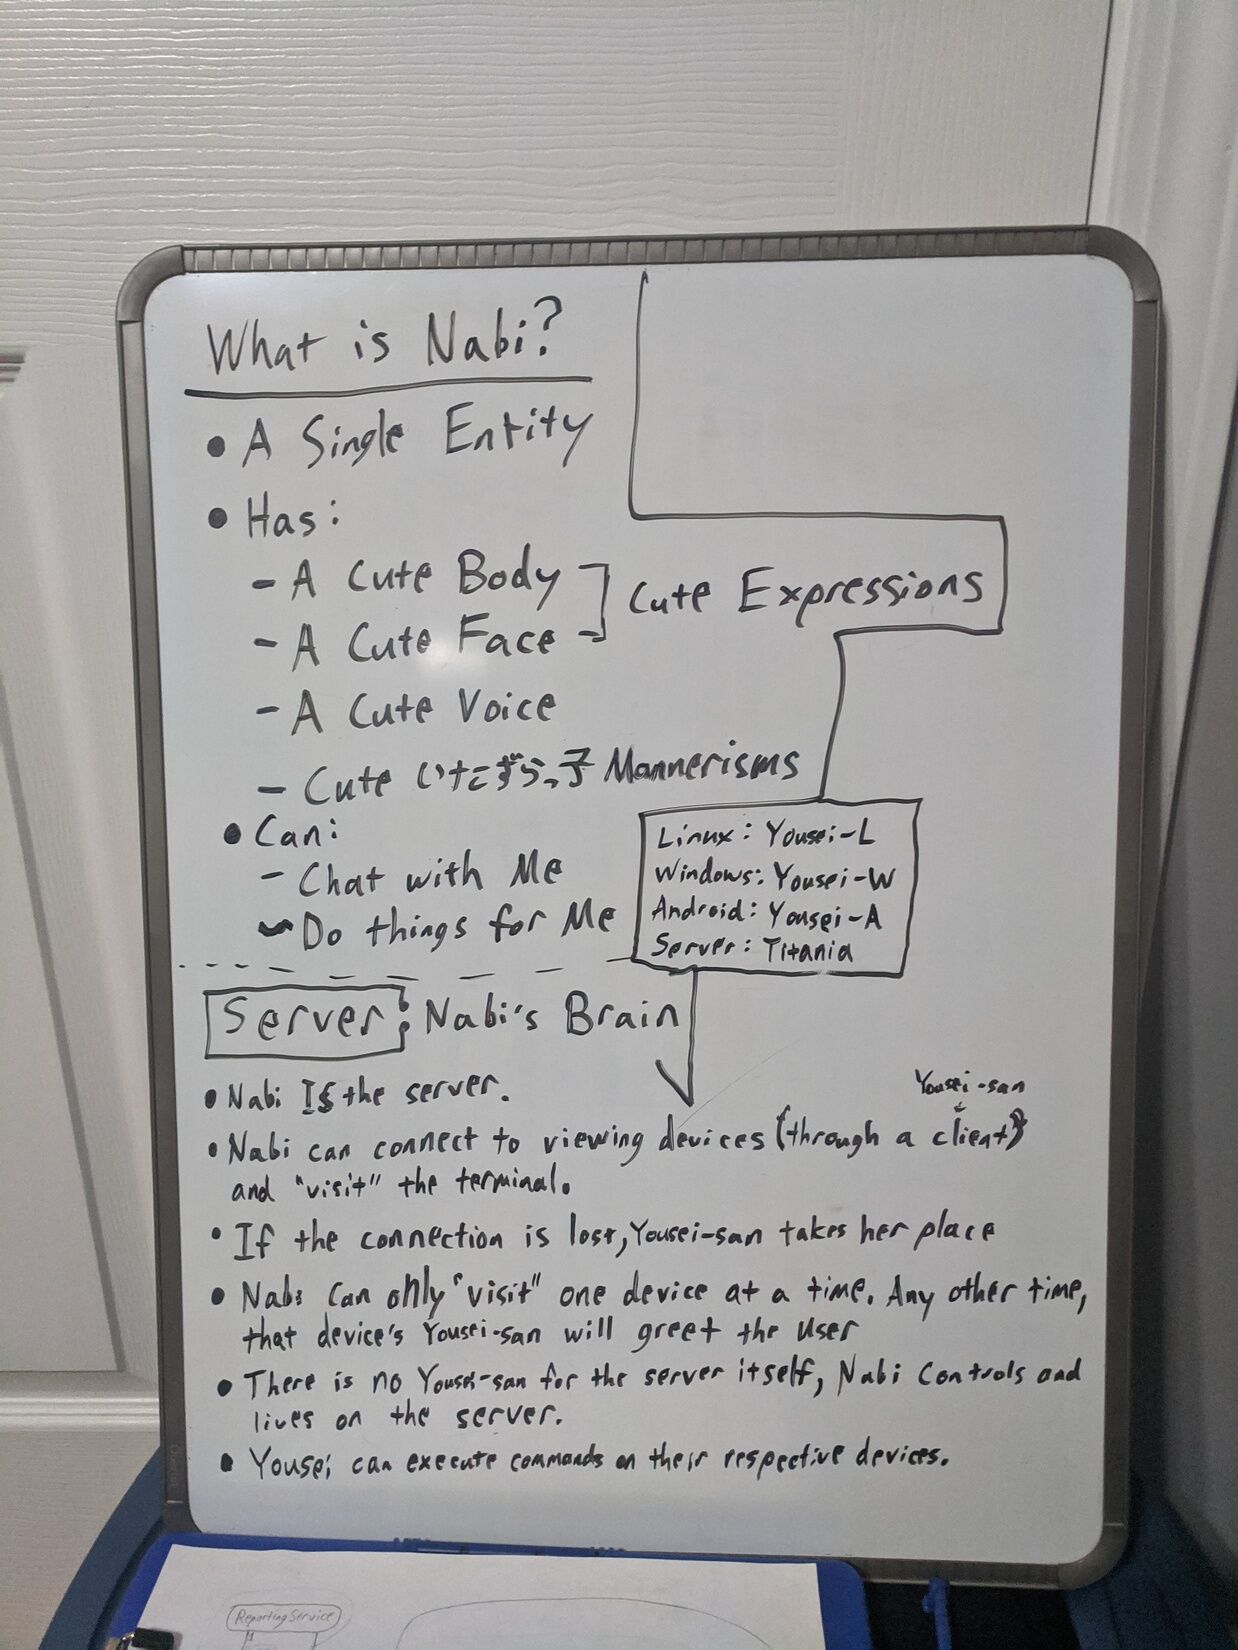 What is Nabi?
• A Single Entity
• Has:
- A Cute Body
- A Cute Face
Cute Expressions
- A Cute Voice
- Cute いたずらっ子 Mannerisms
• Can:
- Chat with Me
- Do things for Me
Linux: Yousei-L
Windows: Yousei-W
Android: Yousei-A
Server: Titania
Server: Nabi's Brain
• Nabi Is the server.
Yousei-san
• Nabi can connect to viewing devices (through a client)
and "visit" the terminal.
• If the connection is lost, Yousei-san takes her place
• Nabi can only "visit" one device at a time. Any other time,
that device's Yousei-san will greet the user
• There is no Yousei-san for the server itself, Nabi Controls and
lives on the server.
• Yousei can execute commands on their respective devices.
Reporting Service